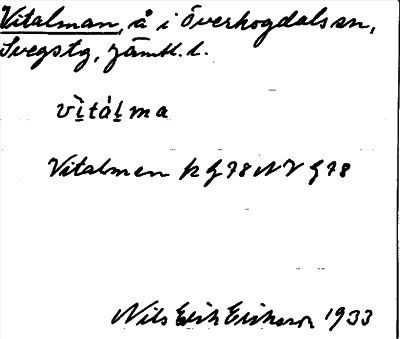 Vitalman, å i Överhogdals sn,
Svegs tg, Jämtl. l.
vìtálma
Vitalmen k G 78 NV G 78
Nils Erik Eriksson 1933